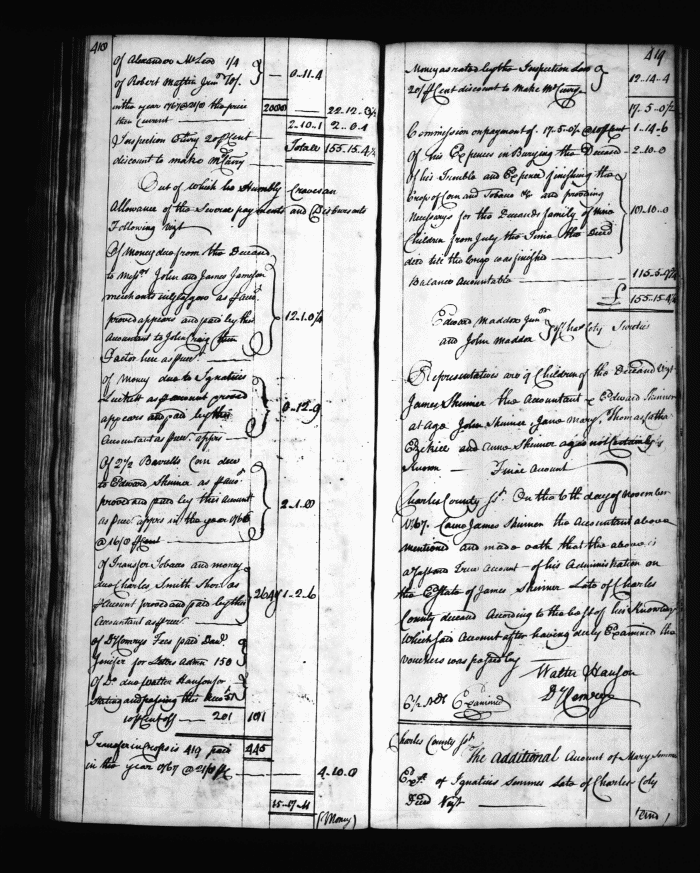 418
Of Alexander McLeod 1/4
of Robert Martin Junr 10/. 0.11.4
in the year 1767 @ 21/0 the price 2000 22.12.
than Current 2.10.1 2.0.4
Inspection Entry 20 P Cent Totale 155.15.4½
discount to make M Curry
Out of which he Humbly Craves an
Allowance of the Several payments and Disbursmts
Following Vizt
Of Money due from the Deceasd
to Messrs John and James Jameson
merchants in Glasgow as P acct
proved appears and paid by this 12.1.0¼
Accountant to John Craig their
Factor here as P rect
Of Money due to Ignatius
Luckett as P account proved
appears and paid by this 0.12.9
Accountant as P rect appears
Of 27½ Barrells Corn due
to Edward Skinner as P acct
proved and paid by this Accountant 2.1.0
as P rect appears in the year 1766
Of Transfer Tobacco and money
due Charles Smith Shor as
P Account proved and paid by this 264 1.2.6
Accountant as P rect
Of Dy Comrys Fees paid Danl
Jenifer for Letters Admn 150
Of Do due Walter Hanson for
Stating and passing this Acct
10 P Cent off 201 181
Transfer in Crops is 419 paid 445
in the year 1767 @ 21/6 P Ct 4.10.0
(Money)
419
Money as rated by the Inspection Law
20 P Cent discount to make M Curry 12.14.4
17.5.0½
Commission on payment of 17.5.0½ @ 10 P Cent 1.14.6
Of his Expences in Burying the Deceased 2.10.0
Of his Trouble and Expence finishing the
Crop of Corn and Tobacco &c and providing
Necessarys for the Deceaseds family of nine 19.10.0
Children from July the Time the Decd
died till the Crop was finished
Balance Accountable
£ 155.15.4½
Edward Maddox Junr
and John Maddox of Chas Coty Sureties
Representatives are 9 Children of the Deceased Vizt
James Skinner the Accountant & Edward Skinner
at age John Skinner Jane Mary, Thomas Cathe
Ezekiel and Anne Skinner ages not Certainly
known Final Account
Charles County Sst On the 6th day of November
1767. Came James Skinner the Accountant above
mentioned and made oath that the above is
a Just and True Account of his Administration on
the Estate of James Skinner Late of Charles
County deceased According to the best of his Knowledge
Which said Account after having duly Examined the
vouchers was passed by
Walter Hanson
Dy Comry
Examined
Charles County Sst
The additional Account of Mary Semmes
Exx of Ignatius Semmes Late of Charles Coty
Decd Vizt